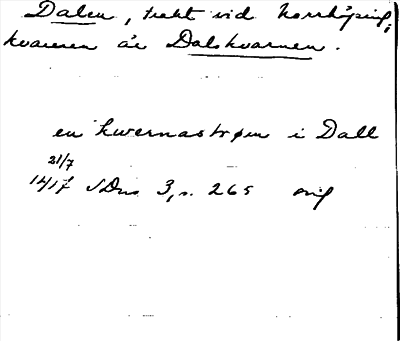 Dalen, trakt vid Norrköping;
kvarnen är Dalskvarnen.
en kwernastrøm i Dall
21/7
1417 SDns 3, s. 265 orig